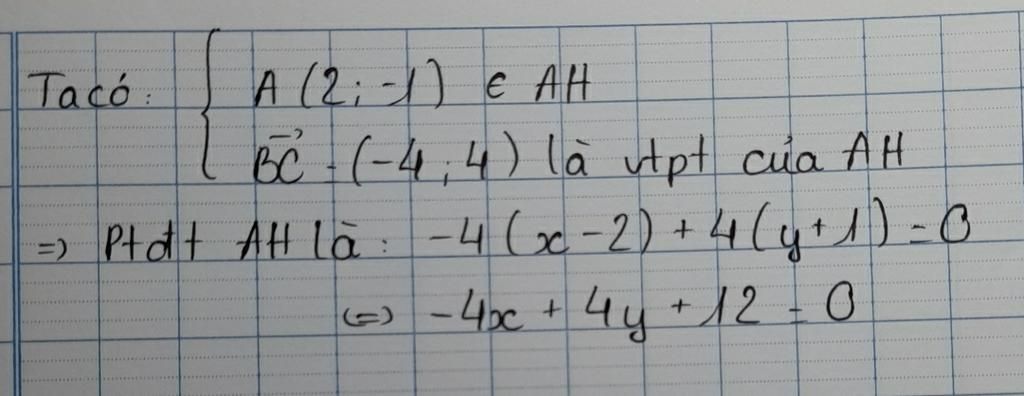 Ta có: { A (2; -1) ∈ AH
$\overrightarrow{BC}$ = (-4; 4) là vtpt của AH
=> Ptđt AH là: -4(x - 2) + 4(y + 1) = 0
<=> -4x + 4y + 12 = 0